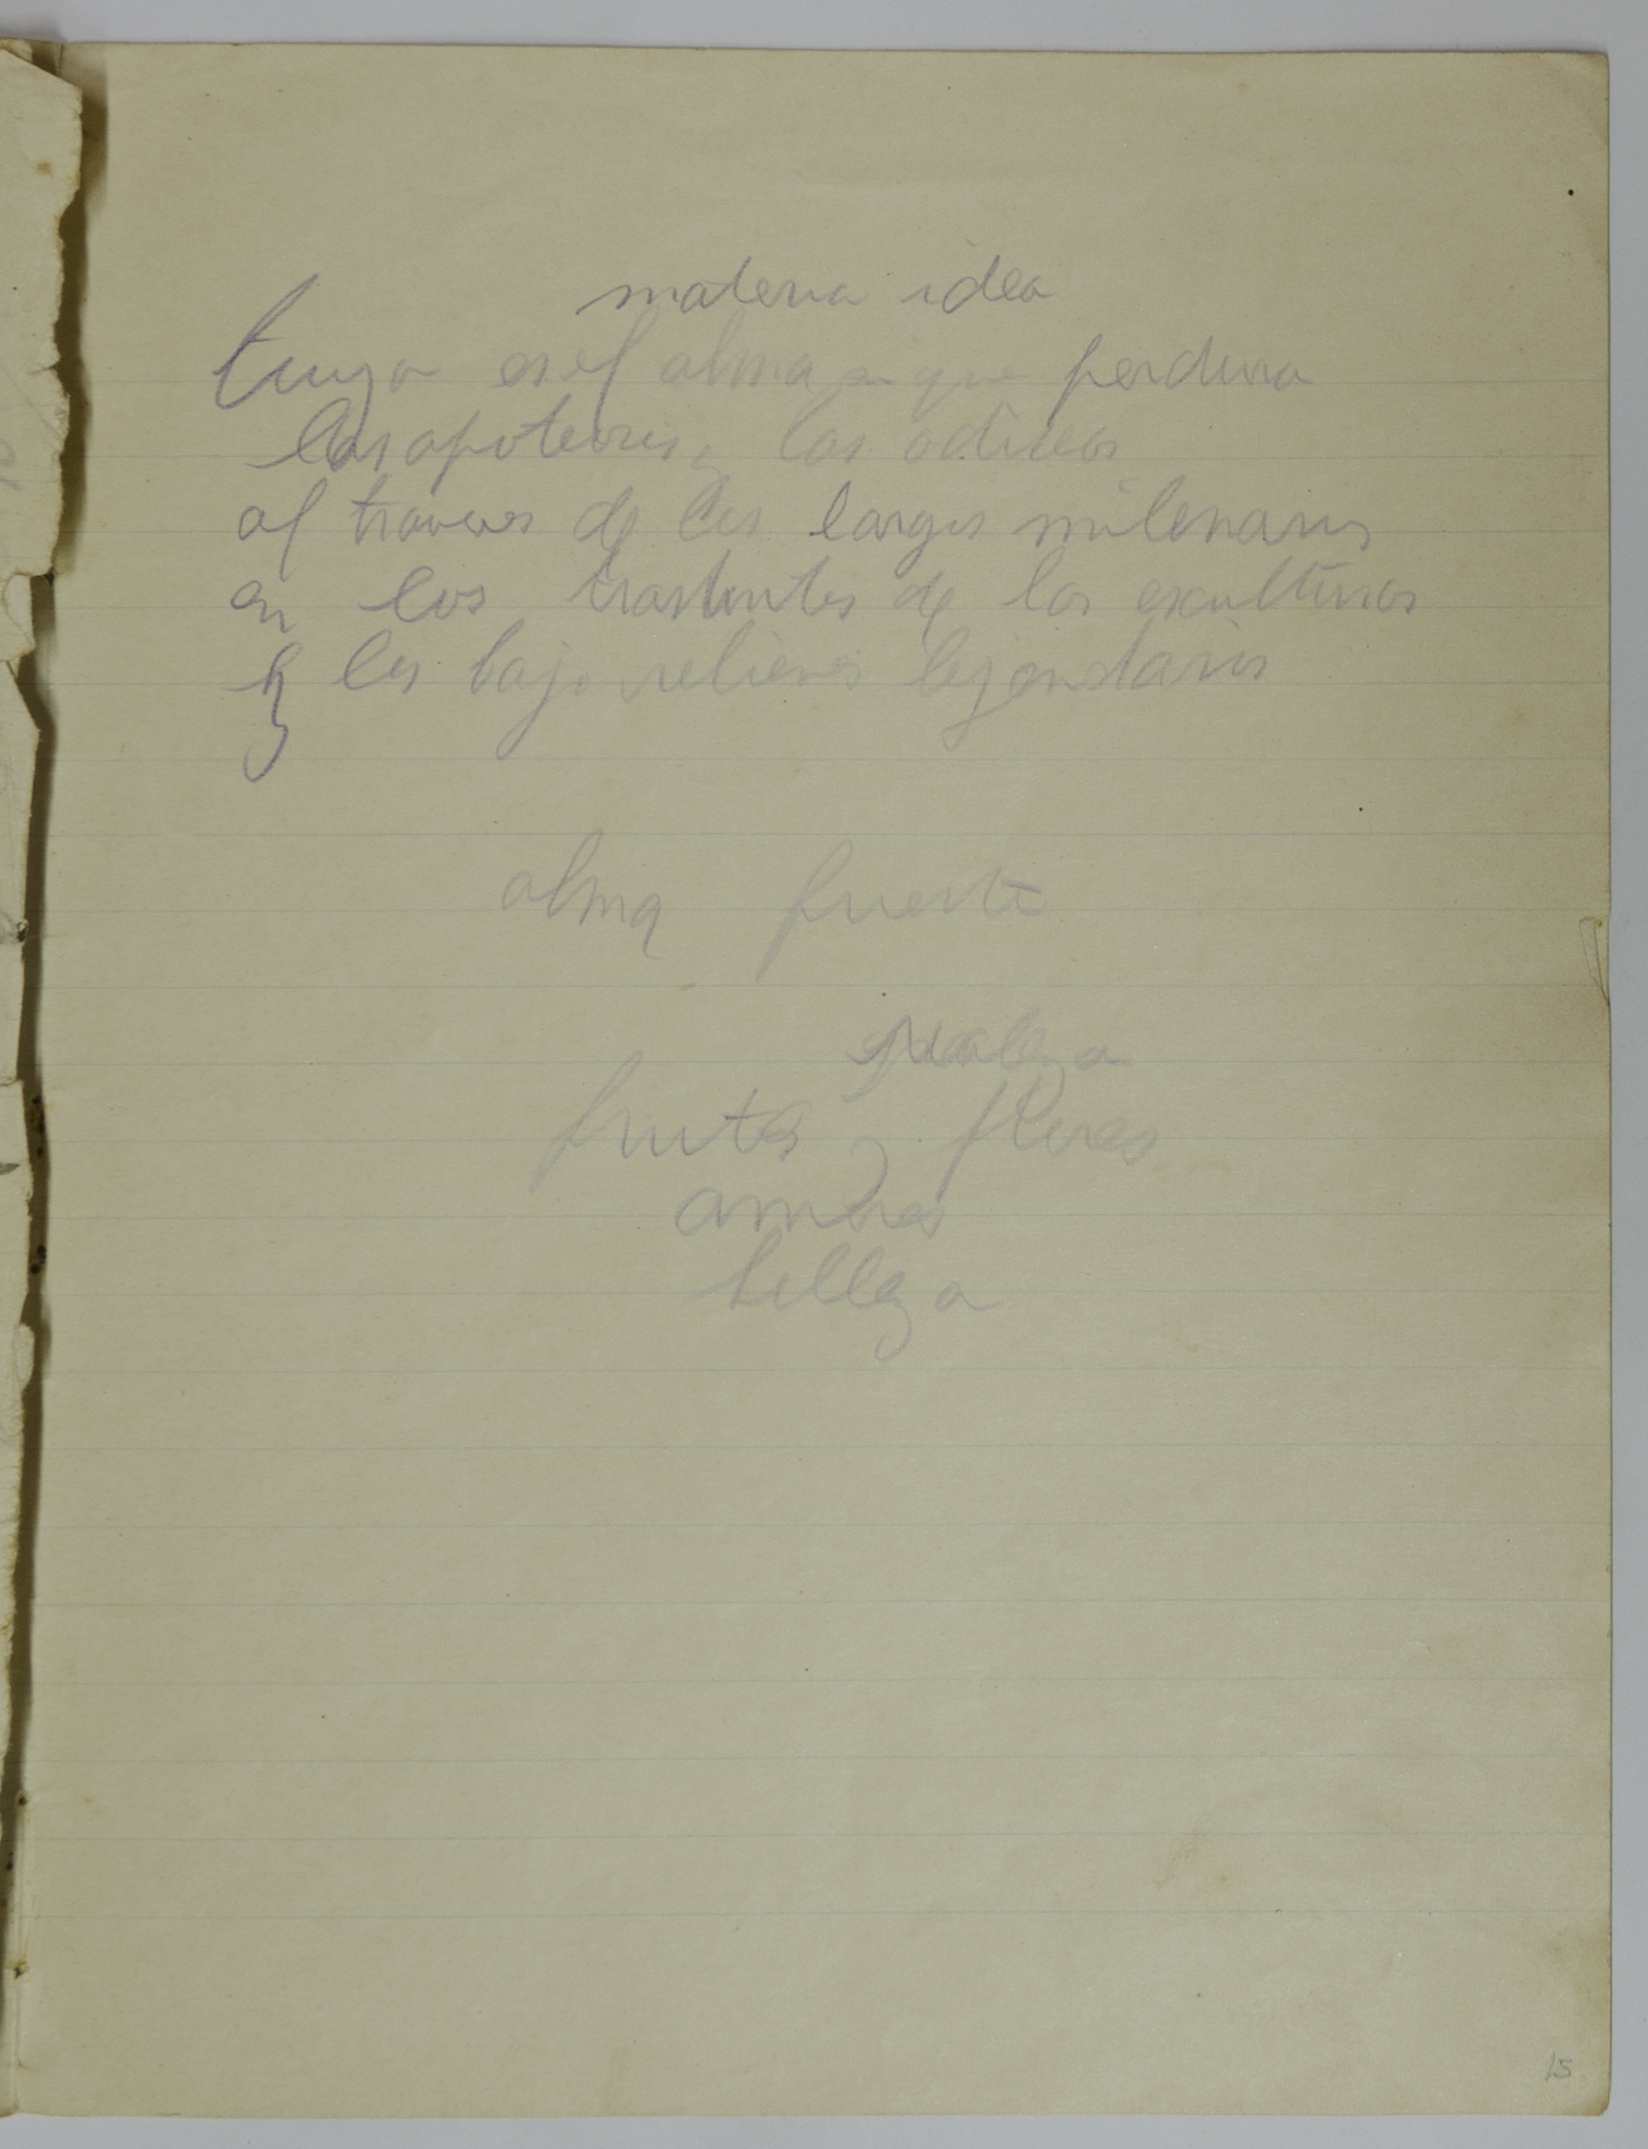 materia idea
tuya es el alma que perdura
las apoteosis y las odiseas
al traves de los largos milenarios
en los de las esculturas
y los bajo relieves lejendarios
alma fuerte
frutos y flores
amores
belleza
15